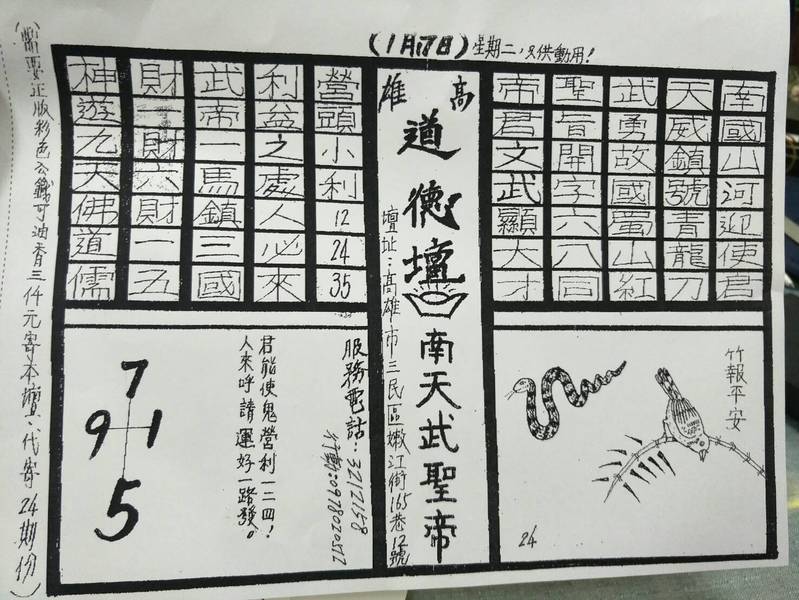 (1月17日)星期二,只供動用!
南國山河迎使君
天威鎮號青龍刀
武勇故國蜀山紅
聖旨開字六八同
帝君文武顯大才
高雄
道德壇
南天武聖帝
壇址:高雄市三民區嫩江街165巷12號
營頭小利122435
利益之處人必來
武帝一馬鎮三國
財一財六財一五
神遊九天佛道儒
竹報平安
24
服務電話:3212158
行動:0978020512
君能使鬼營利一二四!
人來呼請運好一路發。
7
9 1
5
(需要正版彩色公籤可油香三仟元寄本壇、代寄24期份)